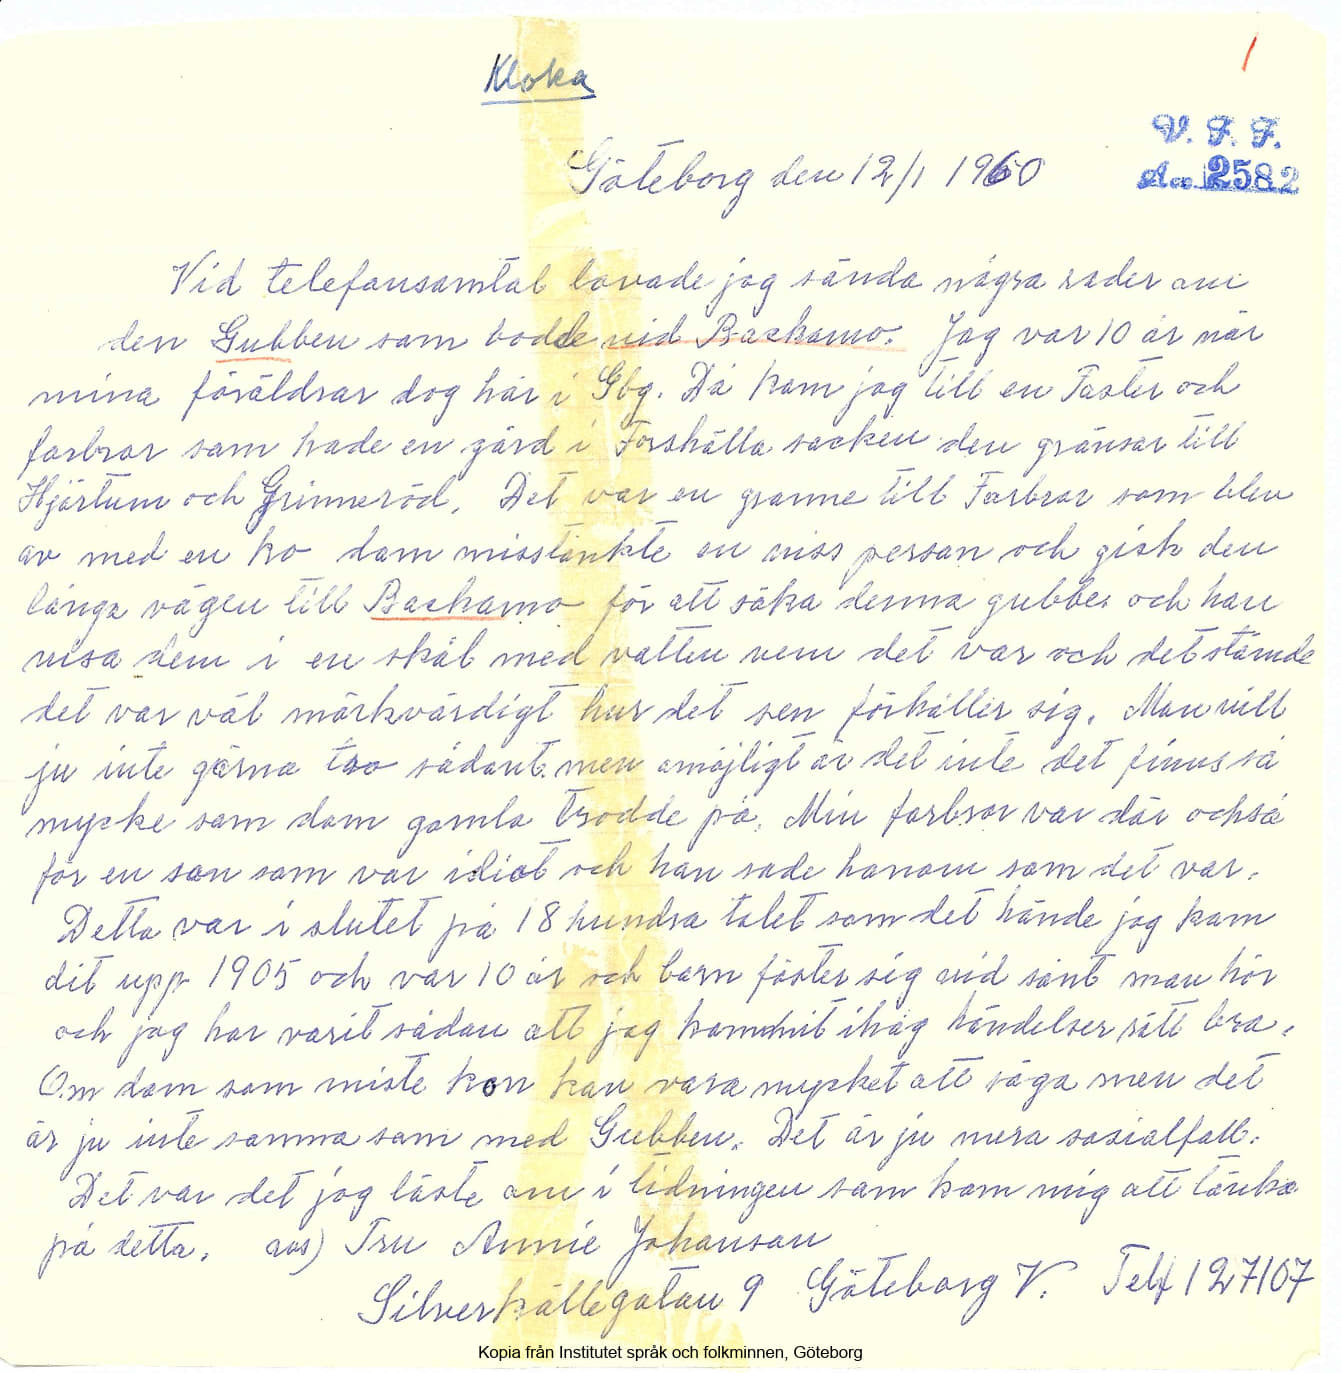 1
Kloka
V. F. F.
Acc. 2582
Göteborg den 12/1 1960
Vid telefonsamtal lovade jag sända några rader om
den Gubben som bodde vid Backamo. Jag var 10 år när
mina föräldrar dog här i Gbg. Då kom jag till en Faster och
farbror som hade en gård i Forshälla socken den gränsar till
Hjärtum och Grinneröd. Det var en granne till Farbror som blev
av med en ko dom misstänkte en viss person och gick den
långa vägen till Backamo för att söka denna gubbe och han
visa dem i en skål med vatten vem det var och det stämde
det var väl märkvärdigt hur det sen förhåller sig. Man vill
ju inte gärna tro sådant men omöjligt är det inte det finns så
mycke som dom gamla trodde på. Min farbror var där också
för en son som var idiot och han sade honom som det var.
Detta var i slutet på 18 hundra talet som det hände jag kom
dit upp 1905 och var 10 år och barn fäster sig vid sånt man hör
och jag har varit sådan att jag kommit ihåg händelser rätt bra.
Om dom som miste kon kan vara mycket att säga men det
är ju inte samma som med Gubben. Det är ju mera sosialfall.
Det var det jag läste om i tidningen som kom mig att tänka
på detta. aos) Fru Annie Johanson
Silverkällegatan 9 Göteborg V. Telf 127107
Kopia från Institutet språk och folkminnen, Göteborg